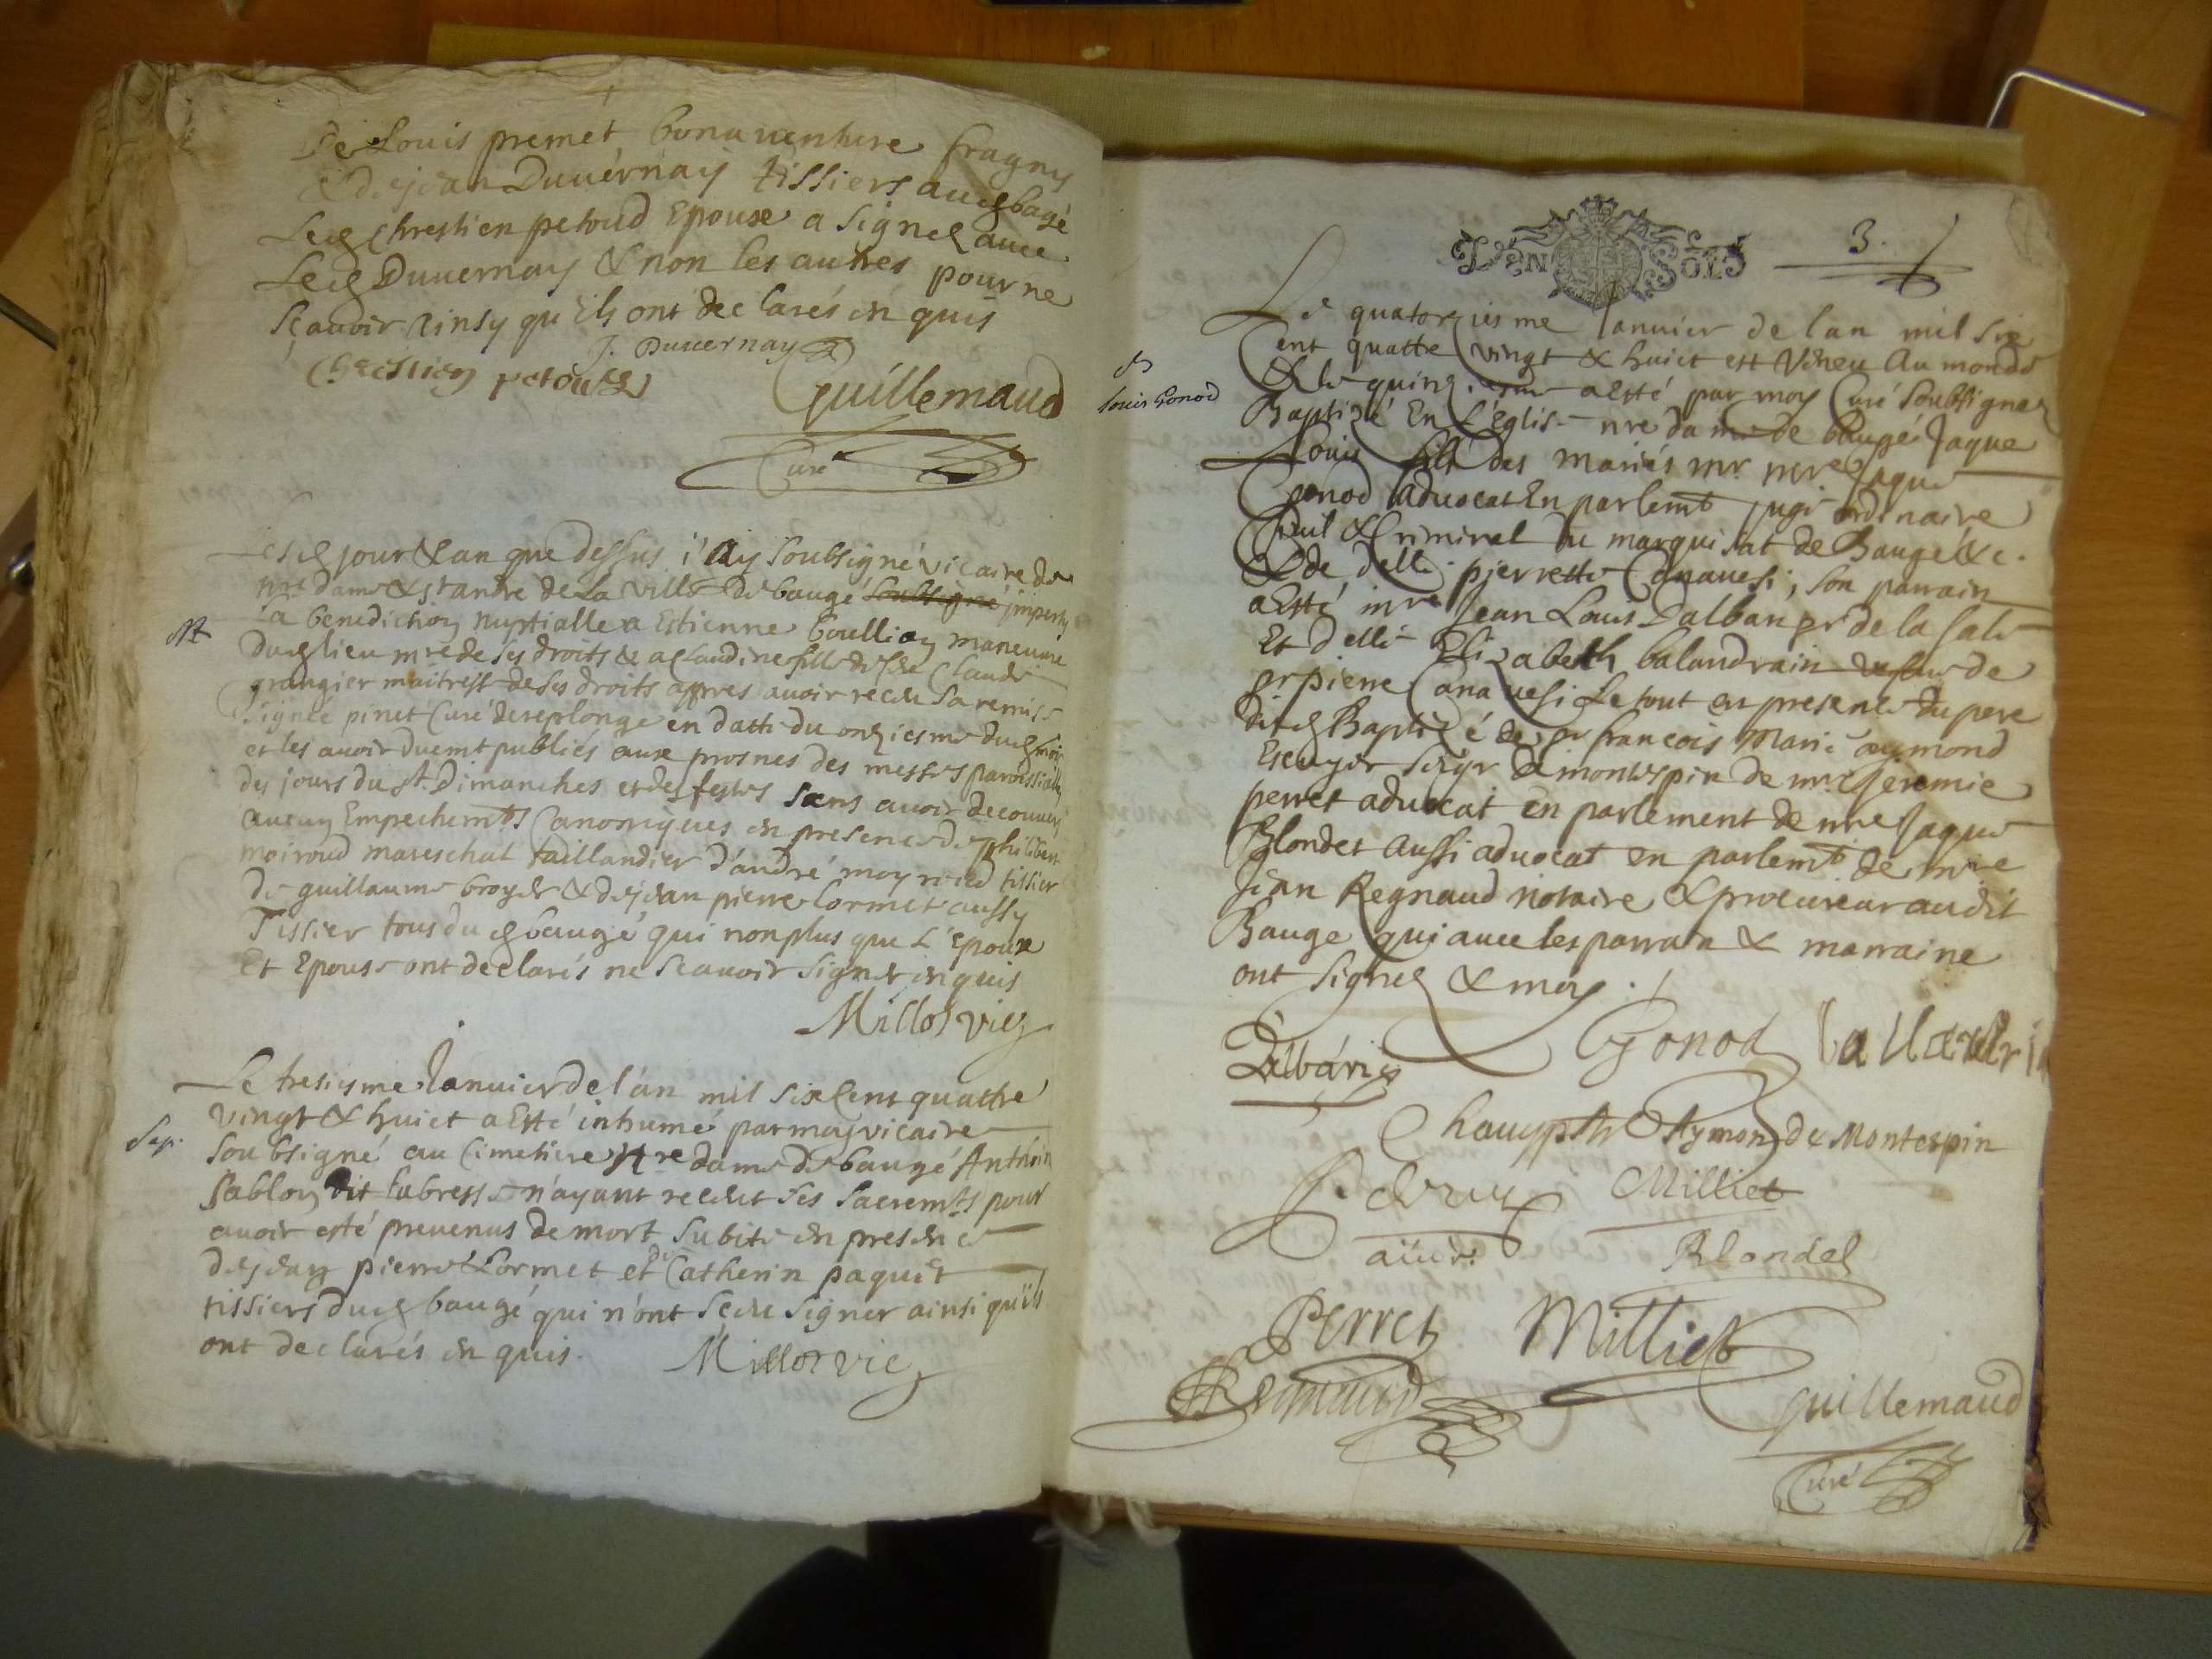 de Louis premet, bonauenture fragny
& de jean Duuernay tissiers aud bagé
Led Chrestien petoud Epoux a signé auec
Led Duuernay & non les autres pour ne
sçauoir ainsy qu'Ils ont declarés en quis
J. Duuernay
Chrestien petoud
Guillemaud
Curé
Lesd jour & an que dessus i'ay soubsigné vicaire de
nre dame & st andré de la ville de baugé soubsigné imparty
M
La benediction nuptialle a Estienne boullion maneuure
dud lieu mre de ses droits & a Claudine fille de Claude
grangier maitresse de ses droits appres auoir receu sa remise
signée pinet Curé de replonge en datte du onziesme dud mois
et les auoir duemt publiés aux prosnes des messes paroissialles
des jours du st Dimanches et des festes sans auoir decouuert
aucun Empechemts Canoniques en presence de philibert
moiroud mareschal taillandier d'andré moyroud tissier
de guillaume broyer & de jean pierre Cormet aussy
Tissier tous dud baugé qui non plus que L'Epoux
Et Epouse ont declarés ne sçauoir signer enquis
Millot vic
Le tresiesme Januier de l'an mil six Cent quattre
vingt & huict a Esté inhumé par moy vicaire
Sep.
soubsigné au Cimetiere nre dame de baugé Anthoine
Sablon dit labresse n'ayant receut ses sacremts pour
auoir esté preuenus de mort subite en presence
de jean pierre Cormet et de Catherin paquet
tissiers dud baugé qui n'ont sceu signer ainsi qu'ils
ont declarés en quis.
Millot vic
DEN SOLS
3.
Le quatorziesme Januier de lan mil six
Cent quattre vingt & huict est Veneu Au monde
& le quinziesme a Esté par moy Curé soubsigné
Louis Gonod
Baptizé En L'Eglise nre dame de baugé Jaque
Louis fils des mariés mr mre Jaque
Gonod aduocat En parlemt juge ordinaire
Ciuil & Criminel du marquisat de Baugé &c.
& de delle pierrette Canauesi, son parrain
a Esté mre Jean Louis Dalban sr de la sale
Et delle Elizabeth balandrain de
sr pierre Canauesi Le tout en presence du pere
dud Baptizé de sr françois Marie aymond
Escuyer seigr de montespin de mre Jeremie
perret aduocat en parlement de mre Jaque
Blondet aussi aduocat en parlemt de mre
Jean Regnaud notaire & procureur audit
Bauge qui auec les parrain & marraine
ont signez & moy.
Dalban
Gonod
Aymon de Montespin
Milliet
Blondet
Perret
Milliet
Regnaud
Guillemaud
Curé